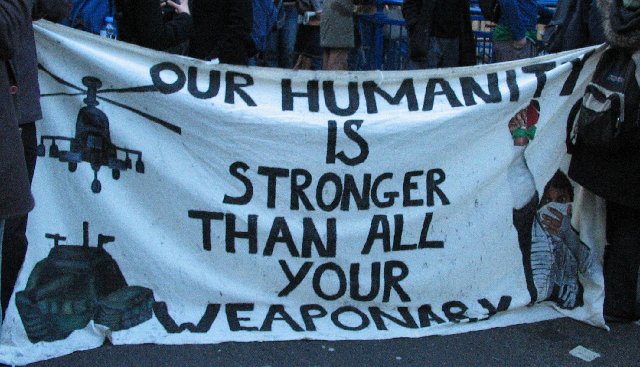 OUR HUMANITY
IS
STRONGER
THAN ALL
YOUR
WEAPONARY